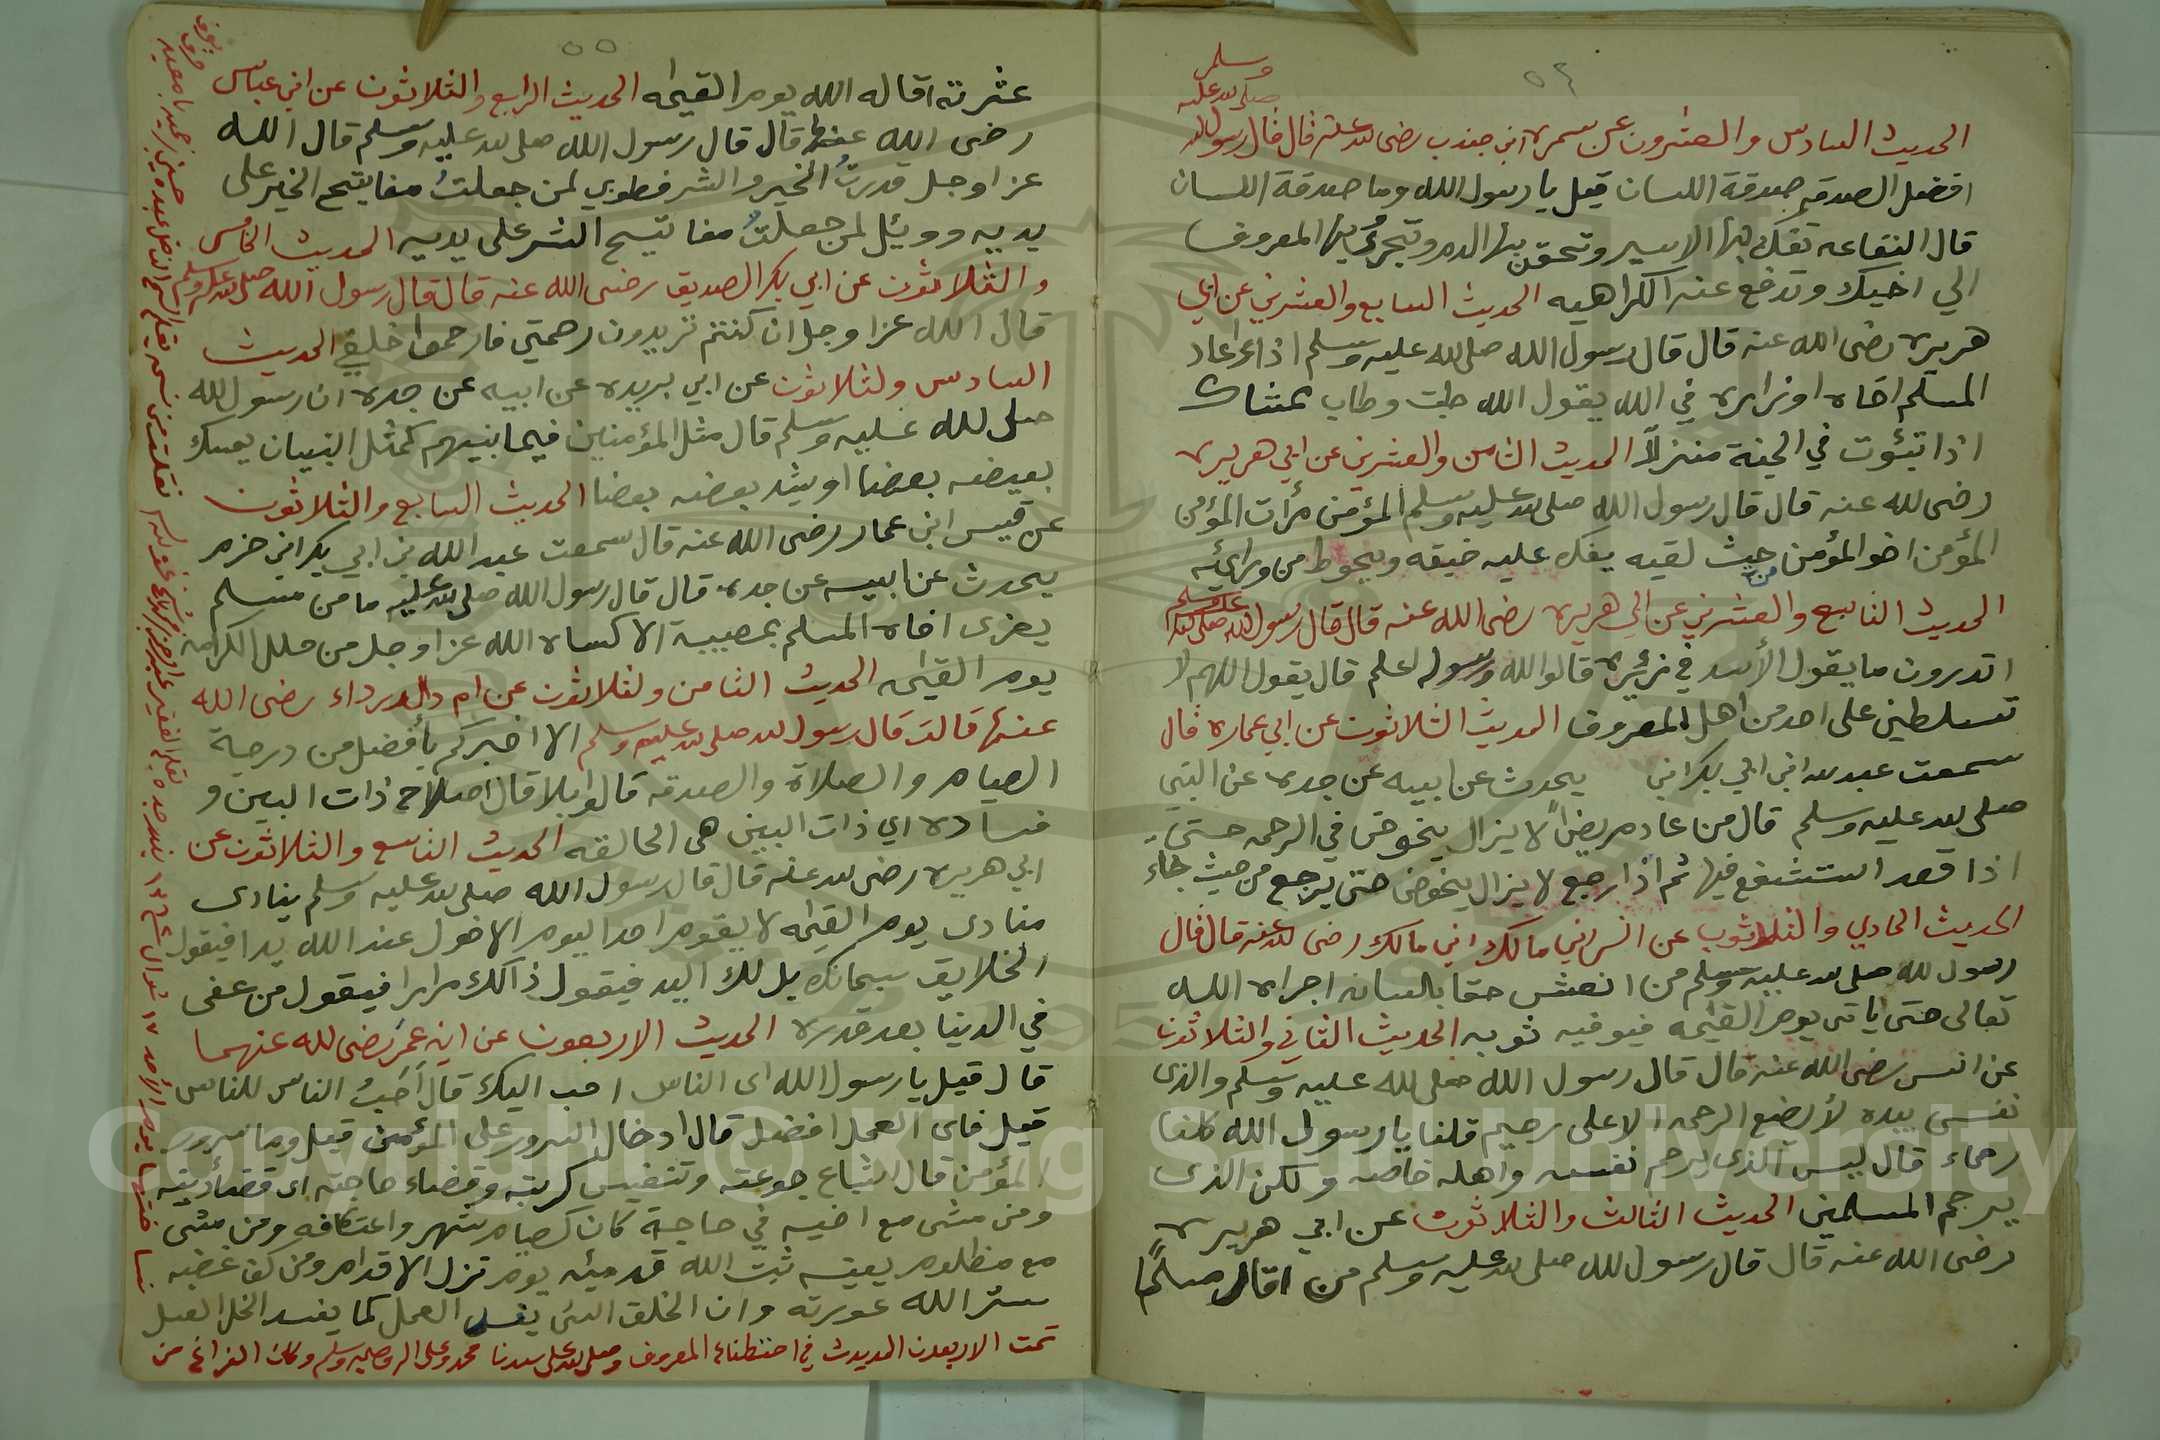 ٥٤
الحديث السادس والعشرون عن سمرة ابن جندب رضى لله عنه قال قال رسول لله
صلى لله عليه
وسلم
افضل الصدقه صدقة اللسان قيل يا رسول الله وما صدقة اللسان
قال الشفاعه تفك بها الاسير وتحقن بها الدم وتجر بها المعروف
الي اخيك وتدفع عنه الكراهيه الحديث السابع والعشرين عن ابي
هريره رضى الله عنه قال قال رسول الله صلى لله عليه وسلم اذا عاد
المسلم اخاه او زاره في الله يقول الله طبت وطاب ممشاك
اذا تبئوت في الجنة منزلاً الحديث الثامن والعشرين عن ابي هريره
رضى لله عنه قال قال رسول الله صلى لله عليه وسلم المؤمن مرأت المؤمن
المؤمن اخو المؤمن حيث لقيه يفك عليه ضيقه ويحوط من ورائه
الحديث التاسع والعشرين عن ابي هريره رضى الله عنه قال قال رسول لله صلى لله
عليه وسلم
اتدرون ما يقول الأسد في زئيره قالوا الله ورسوله اعلم قال يقول اللهم لا
تسلطني على احد من اهل المعروف الحديث الثلاثون عن ابي عماره قال
سمعت عبد لله ابن ابي بكر ابن يحدث عن ابيه عن جده عن النبي
صلى لله عليه وسلم قال من عاد مريضاً لا يزال يخوض في الرحمه حتى
اذا قعد استشفع فيها ثم اذا رجع لا يزال يخوض حتى يرجع من حيث جاء
الحديث الحادي والثلاثون عن انس ابني مالك ابني مالك رضى لله عنه قال قال
رسول لله صلى لله عليه وسلم من انعش حقا بلسانه اجراه الله
تعالى حتى ياتى يوم القيمه فيوفيه ثوبه الحديث الثاني والثلاثون
عن انس رضى الله عنه قال قال رسول الله صلى لله عليه وسلم والذى
نفسى بيده لا يضع الرحمه الا على رحيم قلنا يا رسول الله كلنا
رحماء قال ليس الذى يرحم نفسه واهله خاصه ولكن الذى
يرحم المسلمين الحديث الثالث والثلاثون عن ابي هريره
رضى الله عنه قال قال رسول لله صلى لله عليه وسلم من اقال مسلماً
٥٥
عثرته اقاله الله يوم القيمه الحديث الرابع والثلاثون عن ابن عباس
رضى الله عنهما قال قال رسول الله صلى لله عليه وسلم قال الله
عزا وجل قدرتُ الخير والشر فطوبي لمن جعلتُ مفاتيح الخير على
يديه وويئل لمن جعلتُ مفاتيح الشر على يديه الحديث الخامس
والثلاثون عن ابي بكر الصديق رضى الله عنه قال قال رسول الله صلى لله عليه وسلم
قال الله عزا وجل ان كنتم تريدون رحمتي فارحموا خلقي الحديث
السادس ولثلاثون عن ابي بريده عن ابيه عن جده ان رسول الله
صلى لله عليه وسلم قال مثل المؤمنين فيما بنيهم كمثل البنيان يمسك
بعيضه بعضا او يشد بعضه بعضا الحديث السابع والثلاثون
عن قيس ابن عمار رضى الله عنه قال سمعت عبد الله بن ابي بكر ابن حزم
يحدث عن ابيه عن جده قال قال رسول الله صلى لله عليه ما من مسلم
يعزى اخاه المسلم بمصيبة الا كساه الله عزا وجل من حلل الكرامه
يوم القيمه الحديث الثامن ولثلاثون عن ام دالدرداء رضى الله
عنها قالت قال رسول لله صلى لله عليه وسلم الا اخبركم بأفضل من درجة
الصيام والصلاة والصدقه قالوا بلا قال اصلاح ذات البين و
فساده اي ذات البين هى الحالقه الحديث التاسع والثلاثون عن
ابي هريره رضى لله عنه قال قال رسول الله صلى لله عليه وسلم ينادى
منادى يوم القيمه لا يقوم احد اليوم الا خول عند الله يدا فيقول
الخلايق سبحانك بل لك اليد فيقول ذالك مرارا فيقول من عفى
في الدنيا بعد قدره الحديث الاربعون عن ابن عمر رضى لله عنهما
قال قيل يا رسول الله اى الناس احب اليك قال اَحَبُ الناس للناس
قيل فاى العمل افضل قال ادخال السرور على المؤمن قيل وما سرور
المؤمن قال اشباع جوعته وتنفيس كربته وقضاء حاجته اى قضاء دينه
ومن مشى مع اخيه في حاجة كان كصيام شهر واعتكافه ومن مشى
مع مظلوم يعينه ثبت الله قدميئه يوم تزل الاقدام ومن كف غضبه
ستر الله عورته وان الخلق السئ يفسد العمل كما يفسد الخل العسل
تمت الاربعون الحديث في اصطناع المعروف وصلى لله على سيدنا محمد وعلى اله وصحبه وسلم وكان الفراغ من